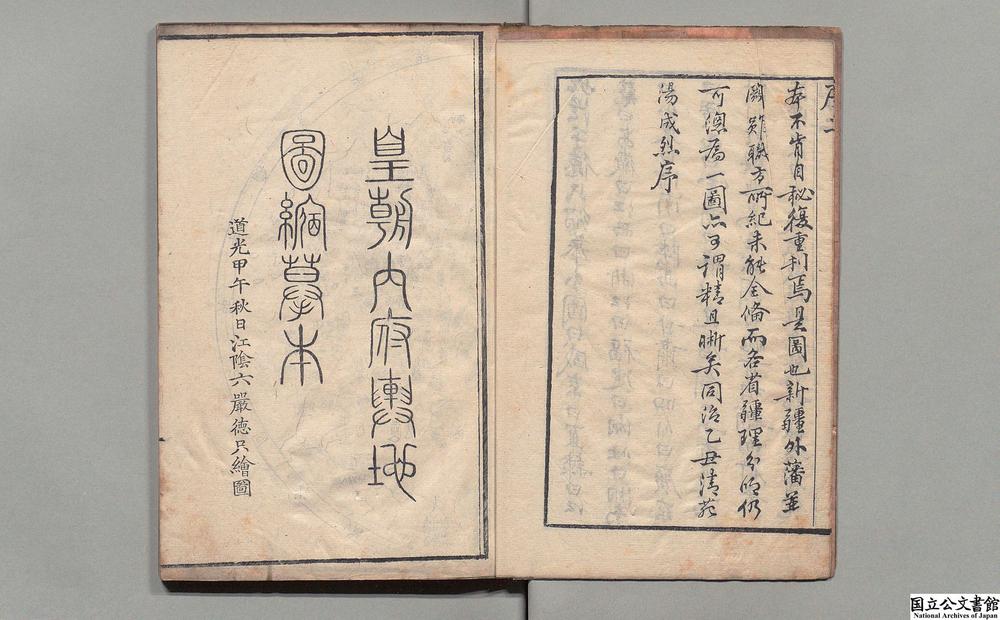 序二
本不肯自秘復重刊焉是圖也新疆外藩並
闕雖職方所紀未能全備而各省疆理分明仍
可總為一圖亦可謂精且晰矣同治乙丑清菘
湯成烈序
皇朝內府輿地
圖縮摹本
道光甲午秋日江陰六嚴德只繪圖
国立公文書館
National Archives of Japan